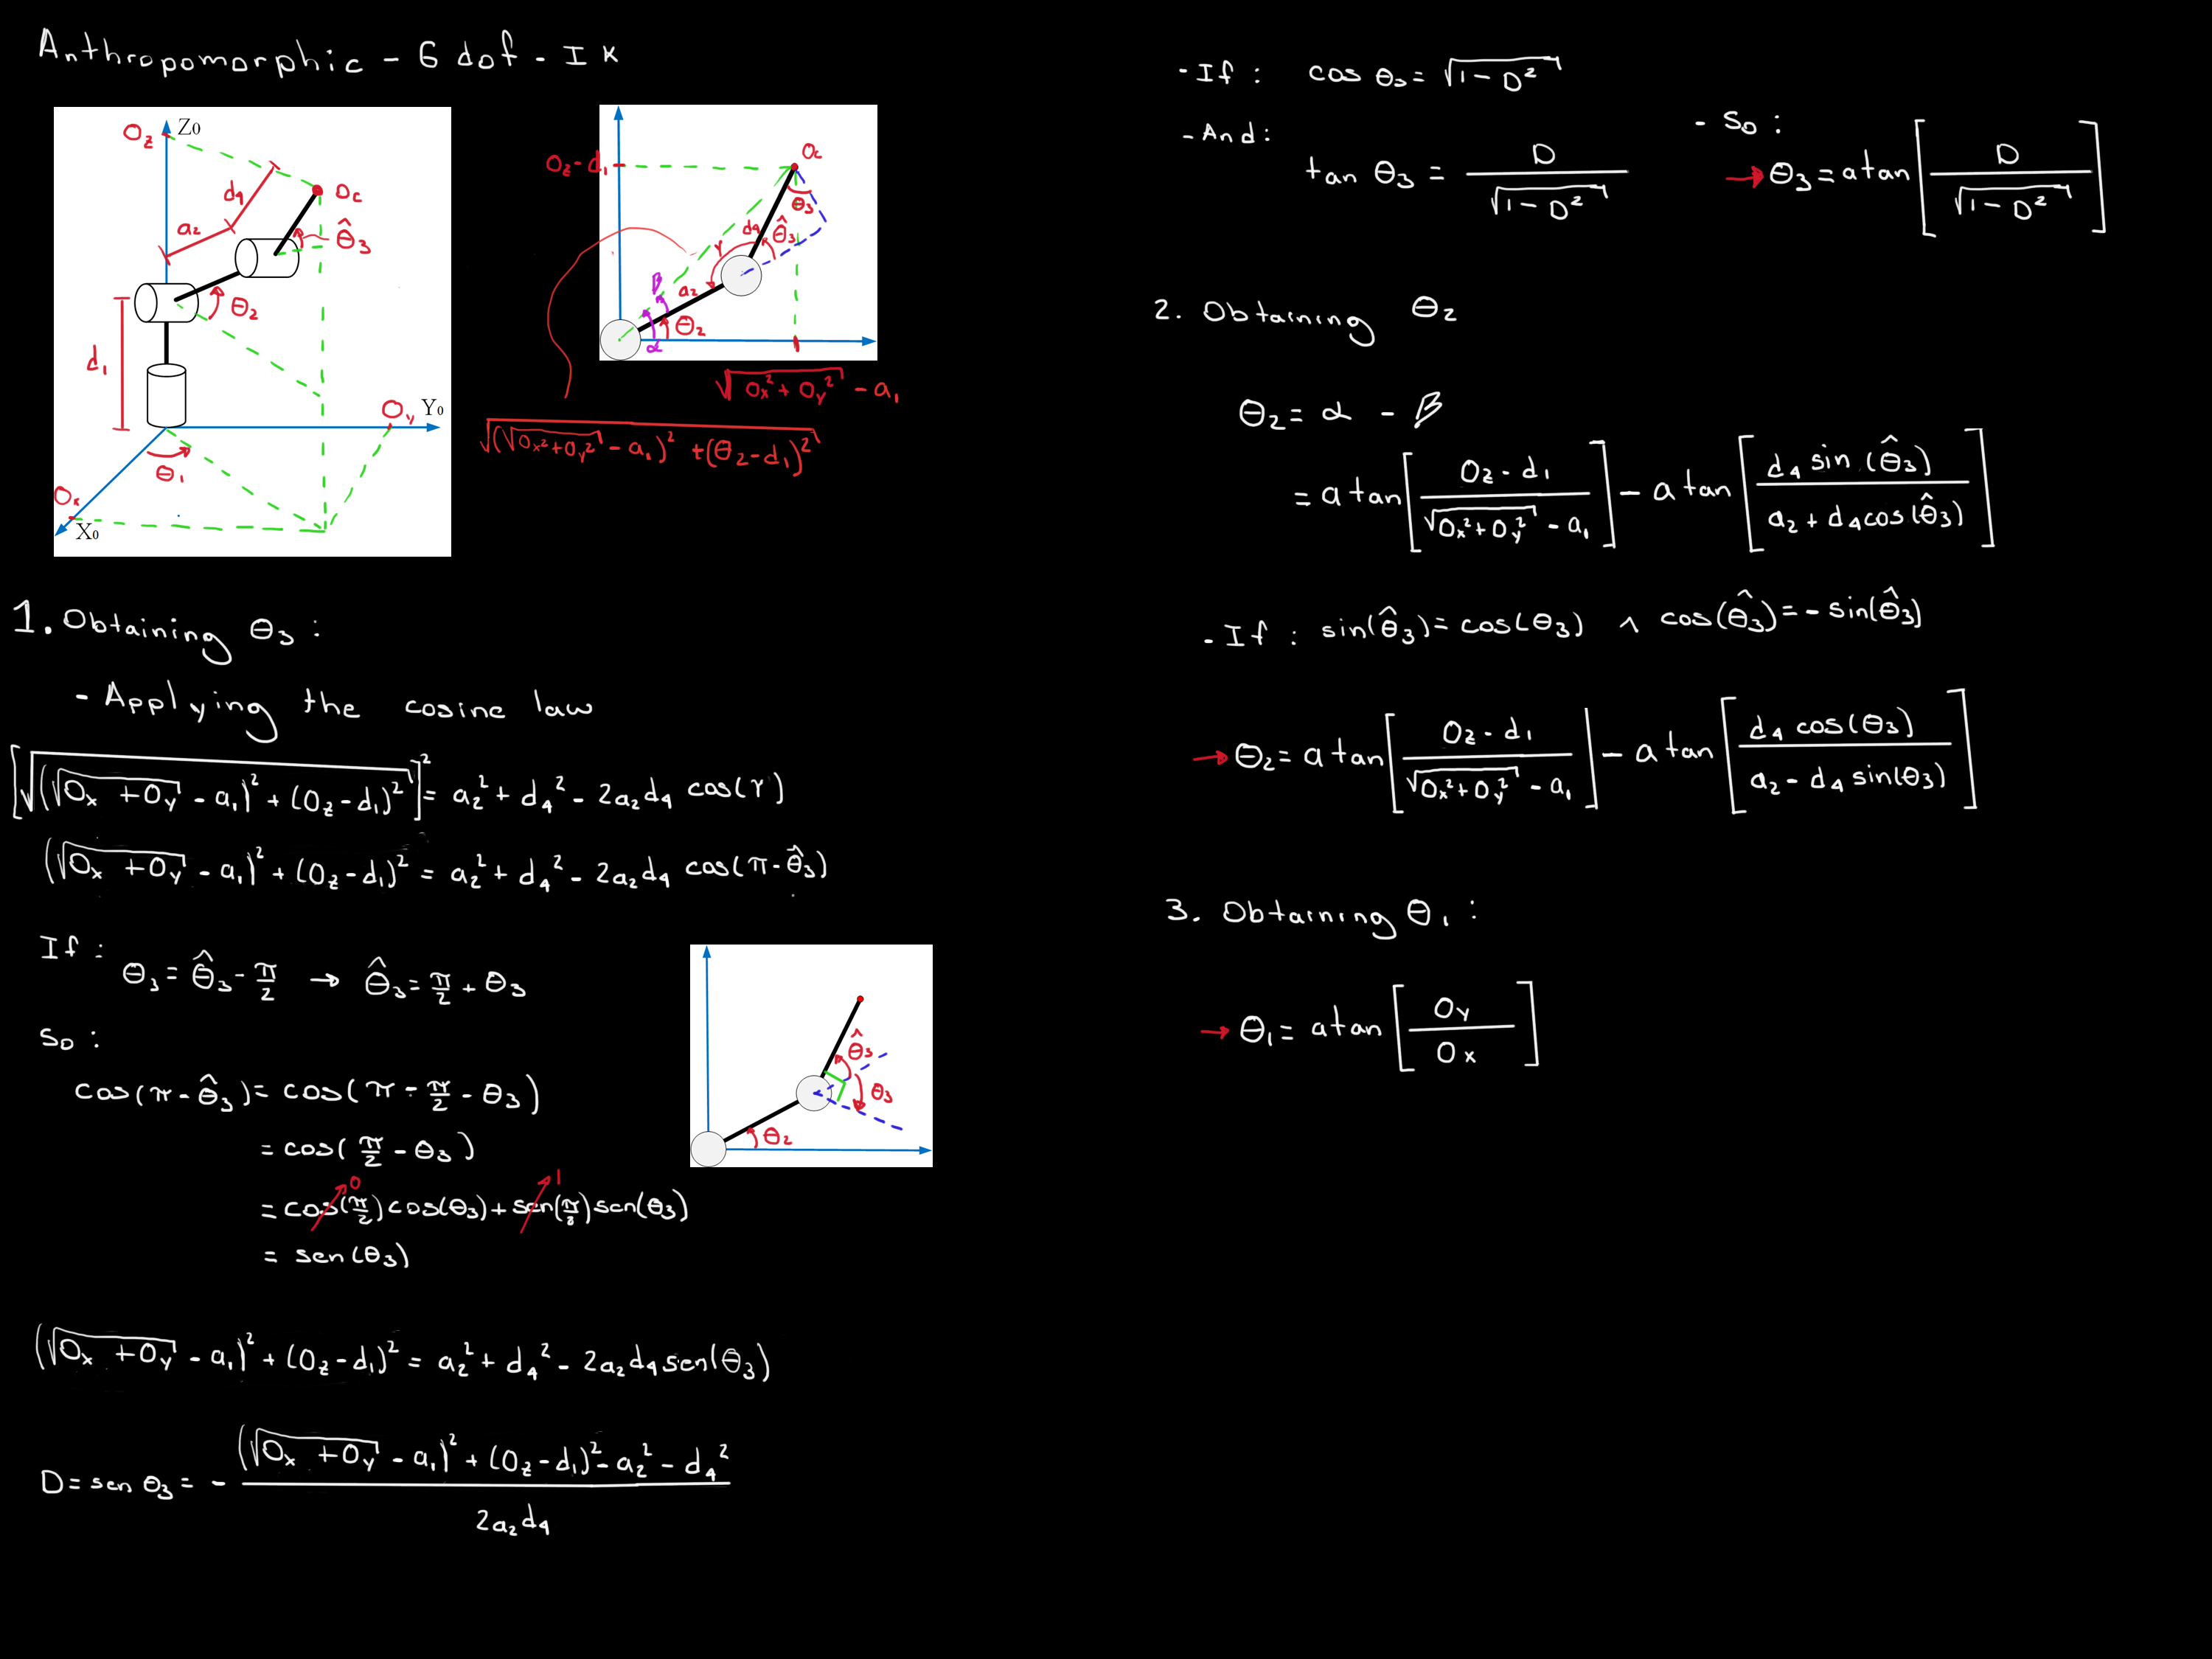 Anthropomorphic - 6 dof - IK
O_z Z0
d_4 O_c
a_2 θ̂_3
θ_2
d_1
O_y Y0
θ_1
O_x
X0
O_z - d_1 O_c
θ_3
d_4 θ̂_3
γ
β a_2
θ_2
α
√(O_x² + O_y²) - a_1
√((√(O_x² + O_y²) - a_1)² + (θ_2 - d_1)²)
1. Obtaining θ_3 :
- Applying the cosine law
[√((√(O_x + O_y) - a_1)² + (O_z - d_1)²)]² = a_2² + d_4² - 2a_2d_4 cos(γ)
(√(O_x + O_y) - a_1)² + (O_z - d_1)² = a_2² + d_4² - 2a_2d_4 cos(π - θ̂_3)
If :
θ_3 = θ̂_3 - π/2 → θ̂_3 = π/2 + θ_3
So :
cos(π - θ̂_3) = cos(π - π/2 - θ_3)
= cos(π/2 - θ_3)
= cos(π/2) 0 cos(θ_3) + sen(π/2) 1 sen(θ_3)
= sen(θ_3)
θ̂_3
θ_3
θ_2
(√(O_x + O_y) - a_1)² + (O_z - d_1)² = a_2² + d_4² - 2a_2d_4 sen(θ_3)
D = sen θ_3 = - ((√(O_x + O_y) - a_1)² + (O_z - d_1)² - a_2² - d_4²) / (2a_2d_4)
- If : cos θ_3 = √(1 - D²)
- And : tan θ_3 = D / √(1 - D²)
- So :
→ θ_3 = atan[D / √(1 - D²)]
2. Obtaining θ_2
θ_2 = α - β
= atan[(O_z - d_1) / (√(O_x² + O_y²) - a_1)] - atan[(d_4 sin(θ̂_3)) / (a_2 + d_4 cos(θ̂_3))]
- If : sin(θ̂_3) = cos(θ_3) ∧ cos(θ̂_3) = - sin(θ̂_3)
→ θ_2 = atan[(O_z - d_1) / (√(O_x² + O_y²) - a_1)] - atan[(d_4 cos(θ_3)) / (a_2 - d_4 sin(θ_3))]
3. Obtaining θ_1 :
→ θ_1 = atan[O_y / O_x]